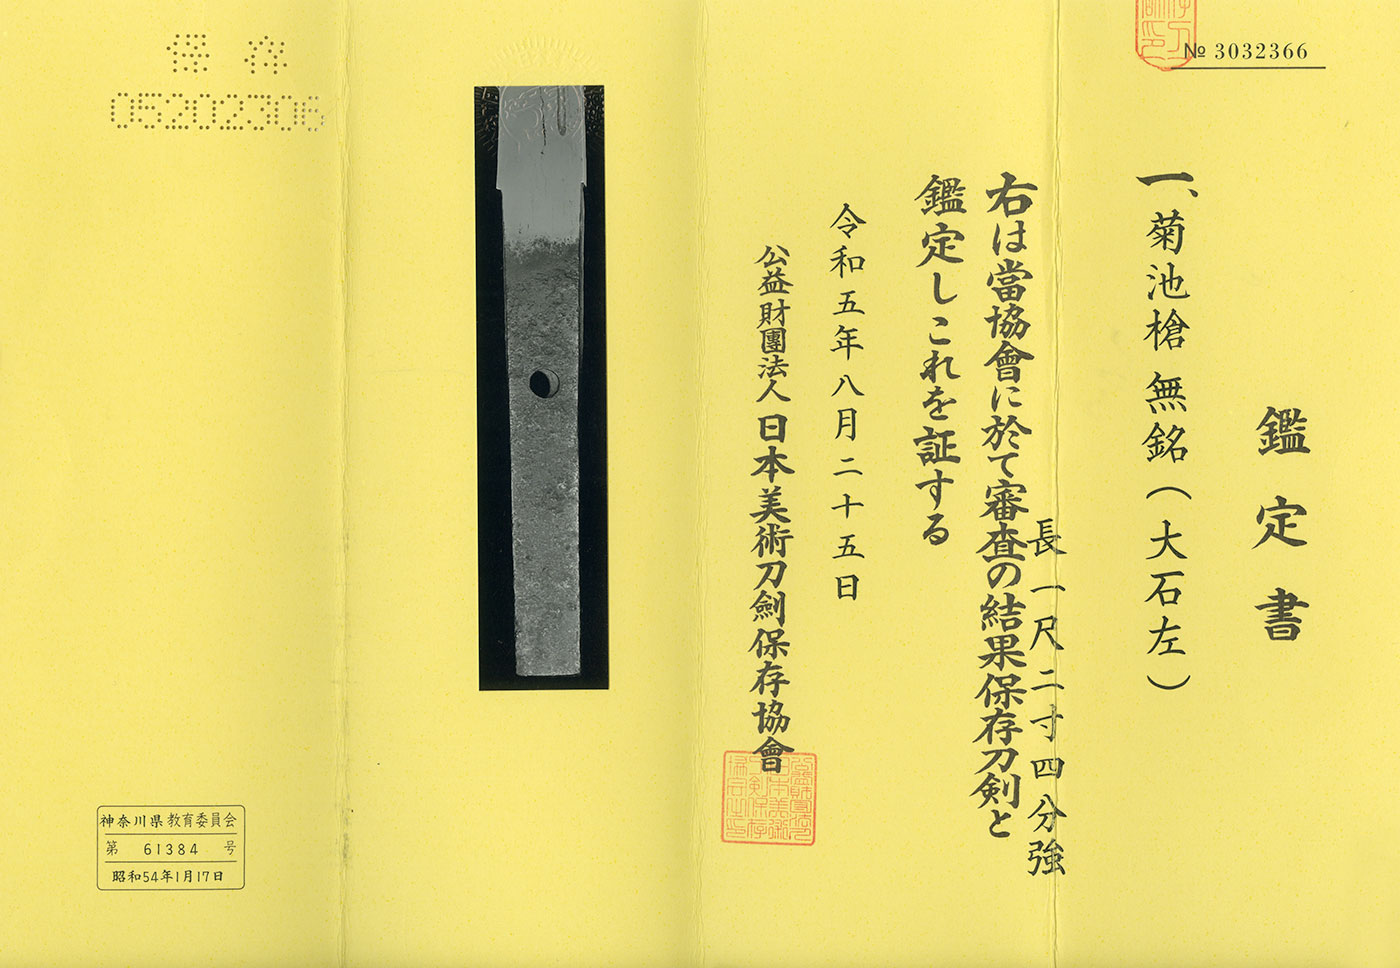 № 3032366
鑑定書
一、菊池槍 無銘(大石左)
長一尺二寸四分強
右は當協會に於て審査の結果保存刀剣と
鑑定しこれを証する
令和五年八月二十五日
公益財團法人 日本美術刀劍保存協會
保存
05202306
神奈川県教育委員会
第 61384 号
昭和54年1月17日